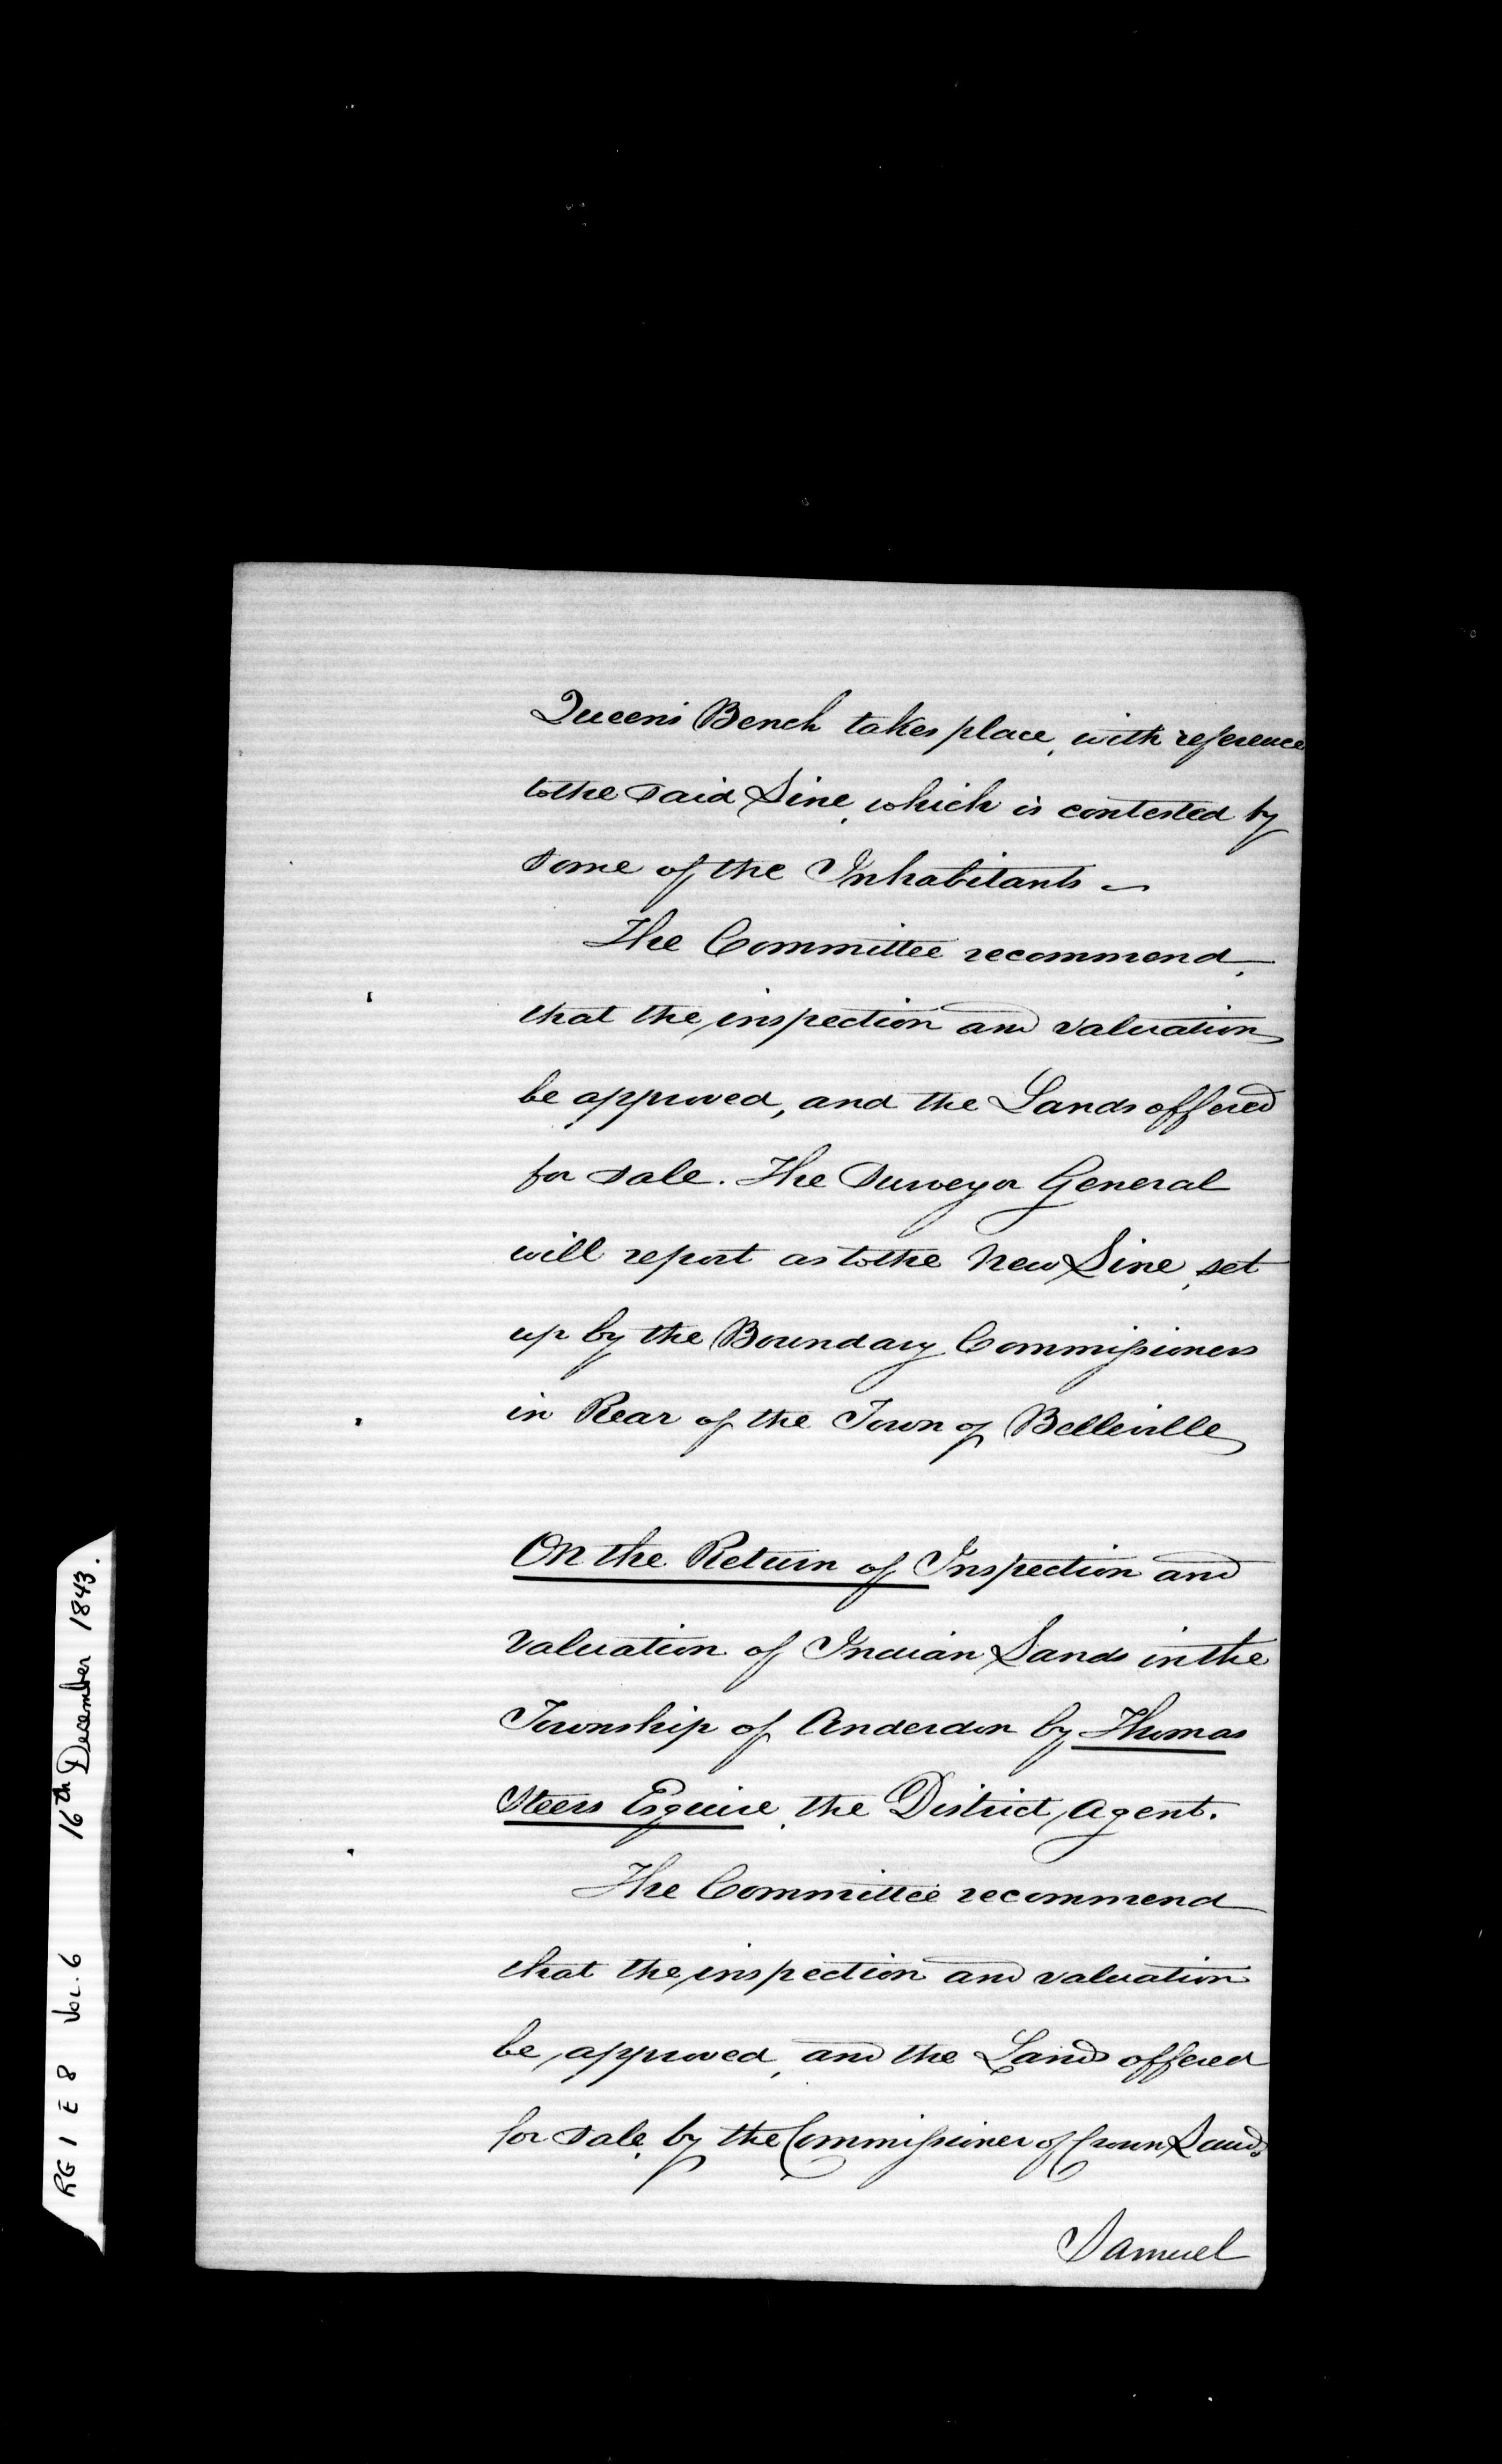 Queen's Bench takes place, with reference
to the said Line, which is contested by
some of the Inhabitants —
The Committee recommend,
that the inspection and valuation
be approved, and the Lands offered
for sale. The Surveyor General
will report as to the New Line, set
up by the Boundary Commissioners
in Rear of the Town of Belleville
On the Return of Inspection and
Valuation of Indian Lands in the
Township of Anderdon by Thomas
Steers Esquire, the District Agent.
The Committee recommend
that the inspection and valuation
be approved, and the Lands offered
for sale, by the Commissioner of Crown Lands
Samuel
RG 1 E 8 Vol. 6 16th December 1843.